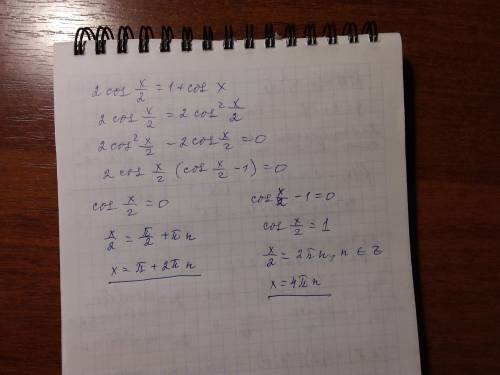 2 cos x/2 = 1 + cos x
2 cos x/2 = 2 cos² x/2
2 cos² x/2 - 2 cos x/2 = 0
2 cos x/2 (cos x/2 - 1) = 0
cos x/2 = 0
x/2 = π/2 + πn
x = π + 2πn
cos x/2 - 1 = 0
cos x/2 = 1
x/2 = 2πn, n ∈ Z
x = 4πn